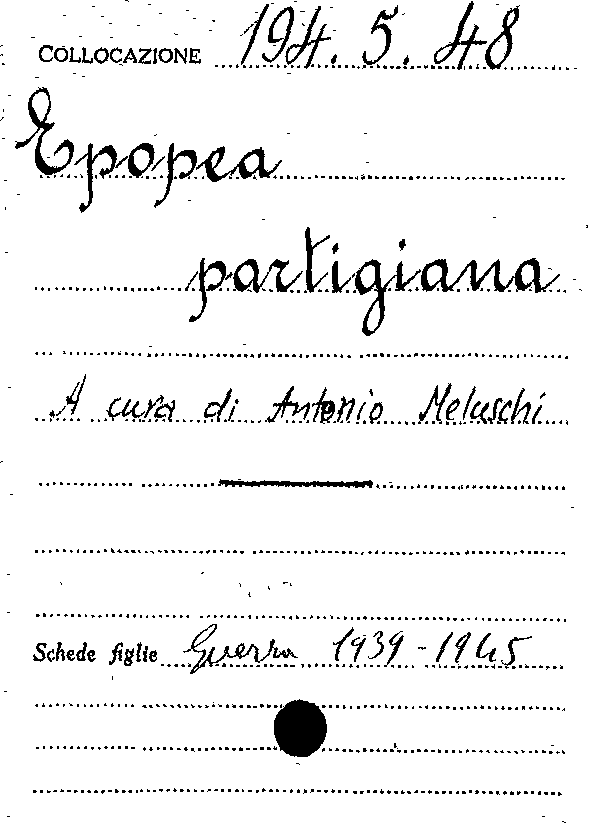 COLLOCAZIONE 194.5.48
Epopea
partigiana
A cura di Antonio Meluschi
Schede figlie Guerra 1939-1945